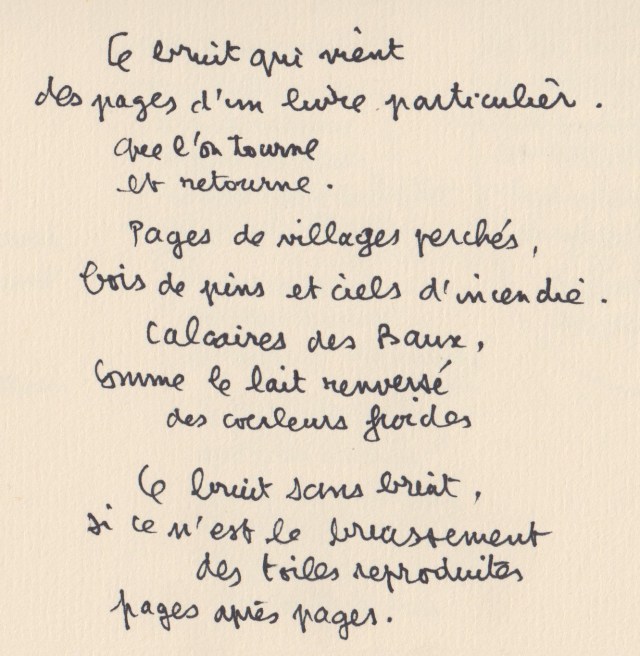 Ce bruit qui vient
des pages d'un livre particulier.
que l'on tourne
et retourne.
Pages de villages perchés,
bois de pins et ciels d'incendie.
Calcaires des Baux,
comme le lait renversé
des couleurs froides
Ce bruit sans bruit,
si ce n'est le bruissement
des toiles reproduites
pages après pages.